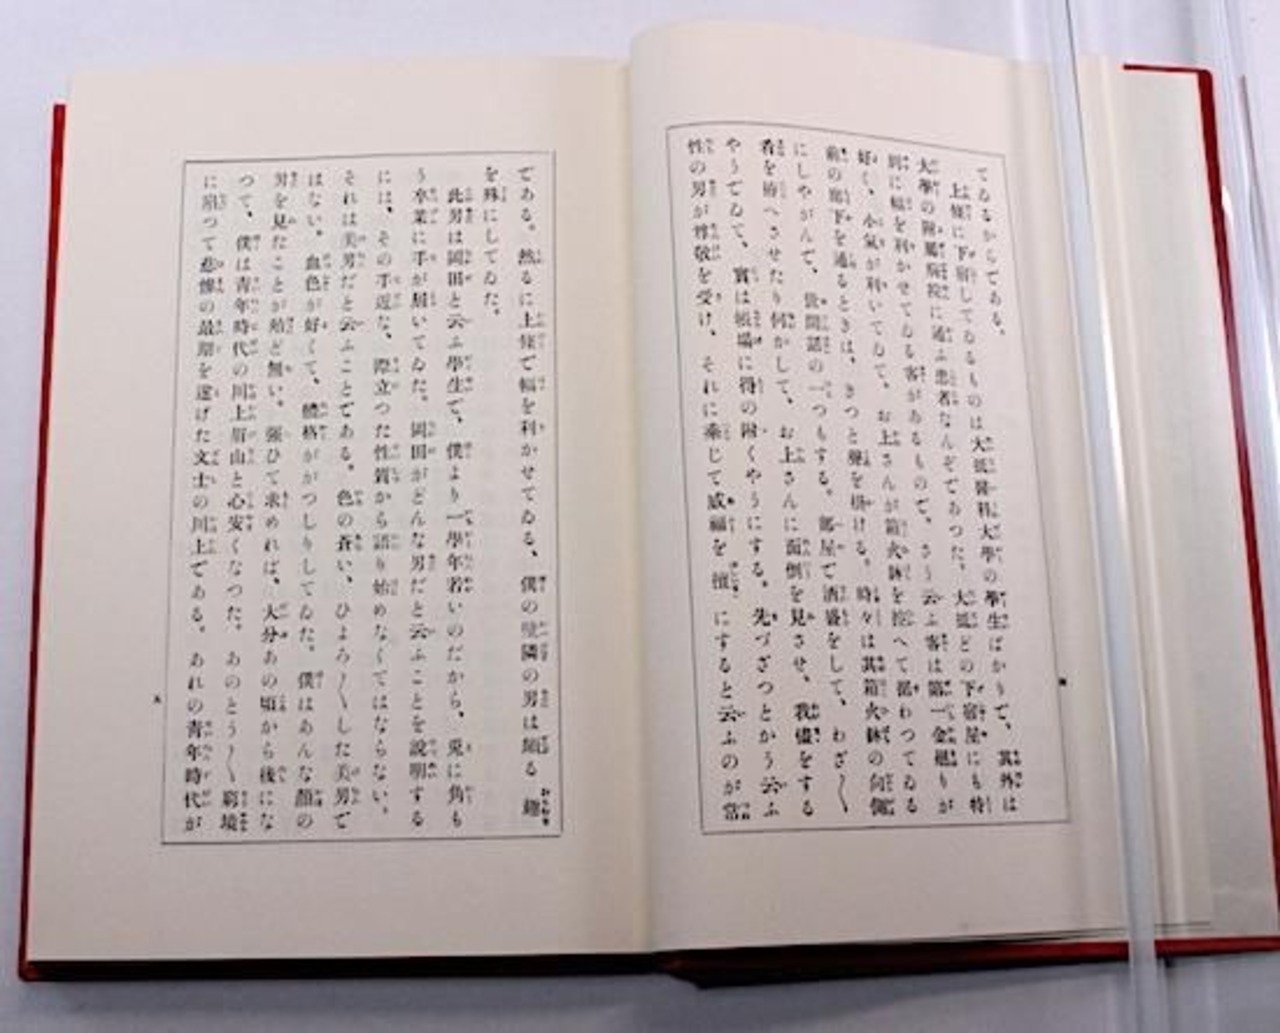 てゐるからである。
上條に下宿してゐるものは大抵醫科大學の學生ばかりで、其外は
大學の附屬病院に通ふ患者なんぞであつた。大抵どの下宿屋にも特
別に幅を利かせてゐる客があるもので、さう云ふ客は第一金廻りが
好く、小氣が利いてゐて、お上さんが箱火鉢を控へて据わつてゐる
前の廊下を通るときは、きつと聲を掛ける。時々は其箱火鉢の向側
にしやがんで、世間話の一つもする。部屋で酒盛をして、わざ〱
肴を拵へさせたり何かして、お上さんに面倒を見させ、我儘をする
やうでゐて、實は帳場に得の附くやうにする。先づざつとかう云ふ
性の男が尊敬を受け、それに乘じて威福を擅にすると云ふのが常
である。然るに上條で幅を利かせてゐる、僕の壁隣の男は頗る趣
を殊にしてゐた。
此男は岡田と云ふ學生で、僕より一學年若いのだから、兎に角も
う卒業に手が届いてゐた。岡田がどんな男だと云ふことを説明する
には、その手近な、際立つた性質から語り始めなくてはならない。
それは美男だと云ふことである。色の蒼い、ひよろ〱した美男で
はない。血色が好くて、體格ががつしりしてゐた。僕はあんな顔の
男を見たことが殆ど無い。強ひて求めれば、大分あの頃から後にな
つて、僕は青年時代の川上眉山と心安くなつた。あのとう〱窮境
に陷つて悲慘の最期を遂げた文士の川上である。あれの青年時代が
五